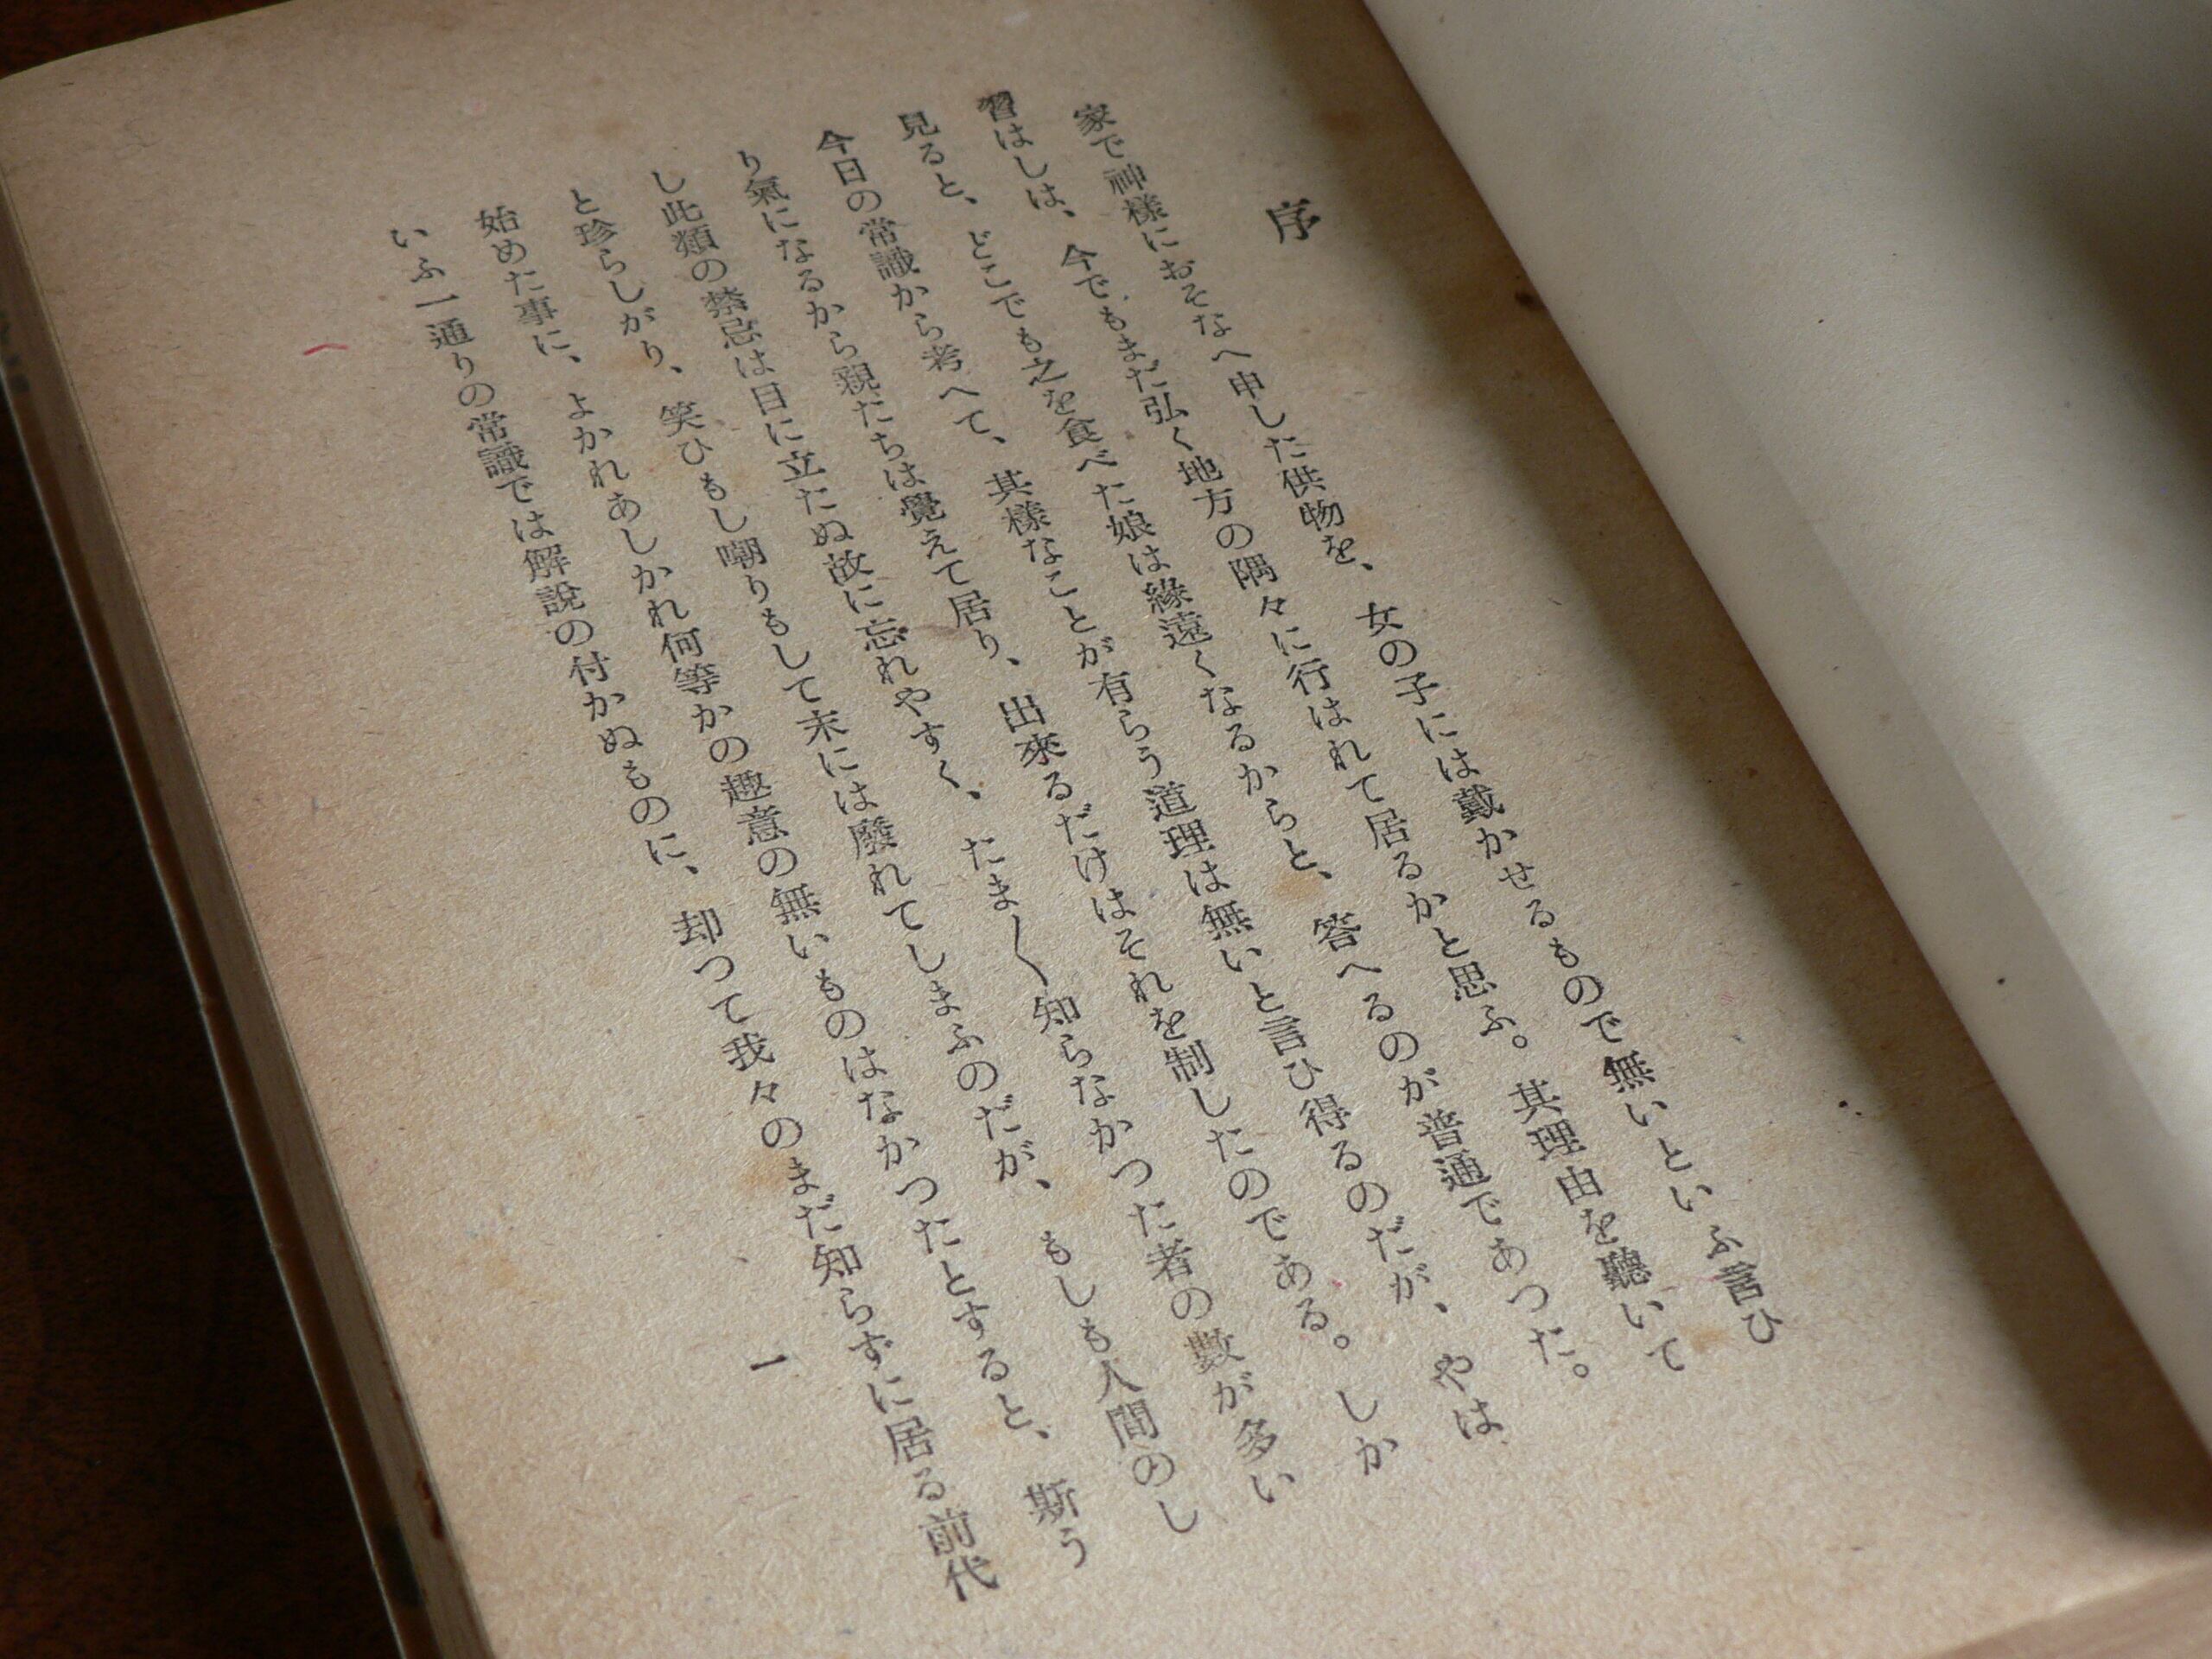 序
家で神樣におそなへ申した供物を、女の子には戴かせるもので無いといふ言ひ
習はしは、今でもまだ弘く地方の隅々に行はれて居るかと思ふ。其理由を聽いて
見ると、どこでも之を食べた娘は緣遠くなるからと、答へるのが普通であつた。
今日の常識から考へて、其樣なことが有らう道理は無いと言ひ得るのだが、やは
り氣になるから親たちは覺えて居り、出來るだけはそれを制したのである。しか
し此類の禁忌は目に立たぬ故に忘れやすく、たま〱知らなかつた者の數が多い
と珍らしがり、笑ひもし嘲りもして末には廢れてしまふのだが、もしも人間のし
始めた事に、よかれあしかれ何等かの趣意の無いものはなかつたとすると、斯う
いふ一通りの常識では解說の付かぬものに、却つて我々のまだ知らずに居る前代
一